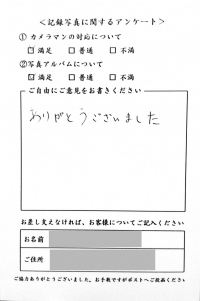 ＜記録写真に関するアンケート＞
① カメラマンの対応について
☑ 満足 □ 普通 □ 不満
②写真アルバムについて
☑ 満足 □ 普通 □ 不満
ご自由にご意見をお書きください
ありがとうございました
お差し支えなければ、お客様についてご記入ください
お名前
ご住所
ご協力ありがとうございました。お手数ですがポストへご投函ください